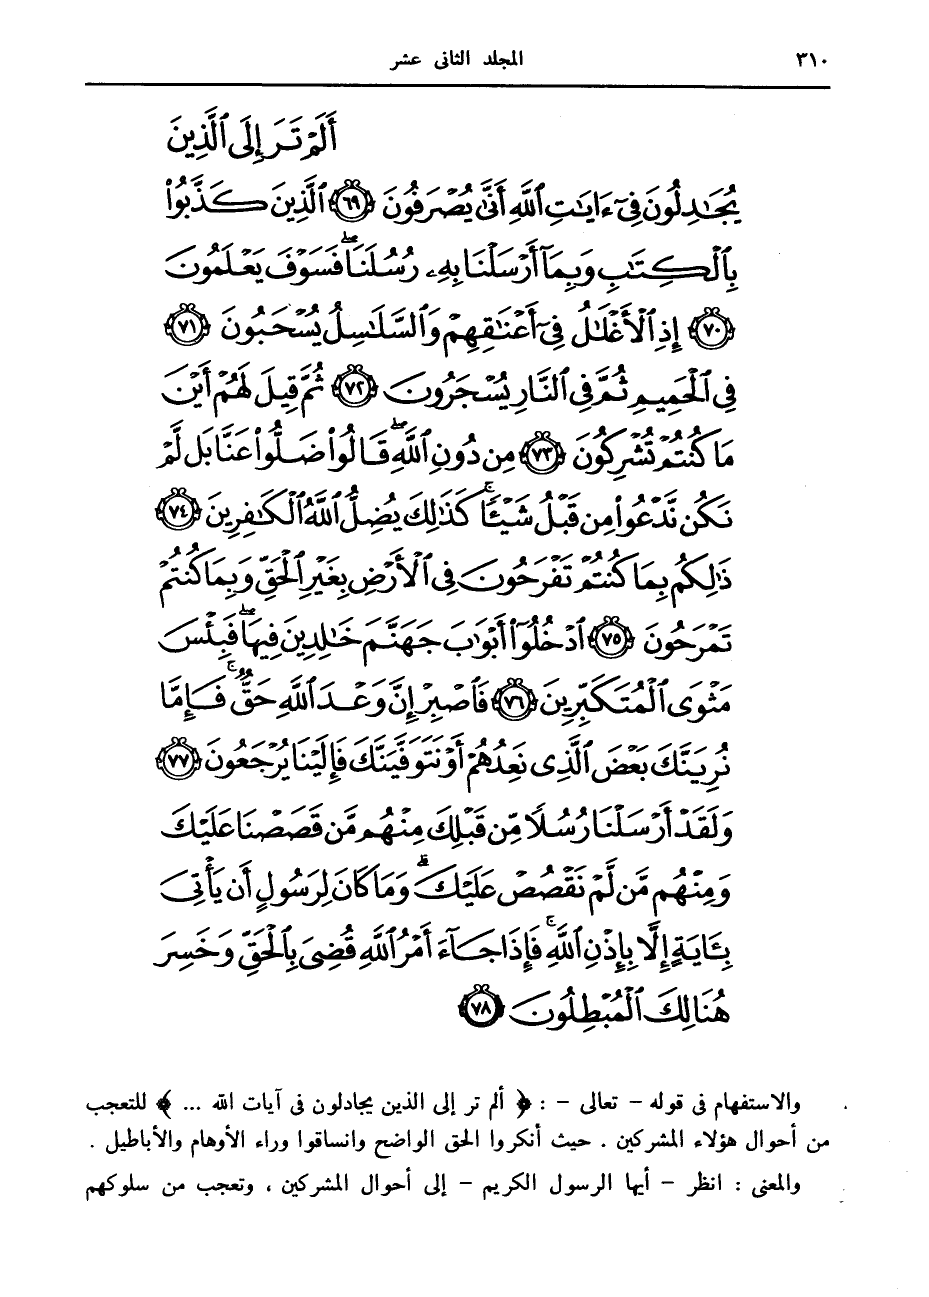 ٣١٠ المجلد الثانى عشر
أَلَمْ تَرَ إِلَى ٱلَّذِينَ
يُجَٰدِلُونَ فِىٓ ءَايَٰتِ ٱللَّهِ أَنَّىٰ يُصْرَفُونَ ﴿٦٩﴾ ٱلَّذِينَ كَذَّبُوا۟
بِٱلْكِتَٰبِ وَبِمَآ أَرْسَلْنَا بِهِۦ رُسُلَنَا ۖ فَسَوْفَ يَعْلَمُونَ
﴿٧٠﴾ إِذِ ٱلْأَغْلَٰلُ فِىٓ أَعْنَٰقِهِمْ وَٱلسَّلَٰسِلُ يُسْحَبُونَ ﴿٧١﴾
فِى ٱلْحَمِيمِ ثُمَّ فِى ٱلنَّارِ يُسْجَرُونَ ﴿٧٢﴾ ثُمَّ قِيلَ لَهُمْ أَيْنَ
مَا كُنتُمْ تُشْرِكُونَ ﴿٧٣﴾ مِن دُونِ ٱللَّهِ ۖ قَالُوا۟ ضَلُّوا۟ عَنَّا بَل لَّمْ
نَكُن نَّدْعُوا۟ مِن قَبْلُ شَيْـًٔا ۚ كَذَٰلِكَ يُضِلُّ ٱللَّهُ ٱلْكَٰفِرِينَ ﴿٧٤﴾
ذَٰلِكُم بِمَا كُنتُمْ تَفْرَحُونَ فِى ٱلْأَرْضِ بِغَيْرِ ٱلْحَقِّ وَبِمَا كُنتُمْ
تَمْرَحُونَ ﴿٧٥﴾ ٱدْخُلُوٓا۟ أَبْوَٰبَ جَهَنَّمَ خَٰلِدِينَ فِيهَا ۖ فَبِئْسَ
مَثْوَى ٱلْمُتَكَبِّرِينَ ﴿٧٦﴾ فَٱصْبِرْ إِنَّ وَعْدَ ٱللَّهِ حَقٌّ ۚ فَإِمَّا
نُرِيَنَّكَ بَعْضَ ٱلَّذِى نَعِدُهُمْ أَوْ نَتَوَفَّيَنَّكَ فَإِلَيْنَا يُرْجَعُونَ ﴿٧٧﴾
وَلَقَدْ أَرْسَلْنَا رُسُلًا مِّن قَبْلِكَ مِنْهُم مَّن قَصَصْنَا عَلَيْكَ
وَمِنْهُم مَّن لَّمْ نَقْصُصْ عَلَيْكَ ۗ وَمَا كَانَ لِرَسُولٍ أَن يَأْتِىَ
بِـَٔايَةٍ إِلَّا بِإِذْنِ ٱللَّهِ ۚ فَإِذَا جَآءَ أَمْرُ ٱللَّهِ قُضِىَ بِٱلْحَقِّ وَخَسِرَ
هُنَالِكَ ٱلْمُبْطِلُونَ ﴿٧٨﴾
والاستفهام فى قوله – تعالى – : ﴿ ألم تر إلى الذين يجادلون فى آيات الله ... ﴾ للتعجب
من أحوال هؤلاء المشركين . حيث أنكروا الحق الواضح وانساقوا وراء الأوهام والأباطيل .
والمعنى : انظر – أيها الرسول الكريم – إلى أحوال المشركين ، وتعجب من سلوكهم